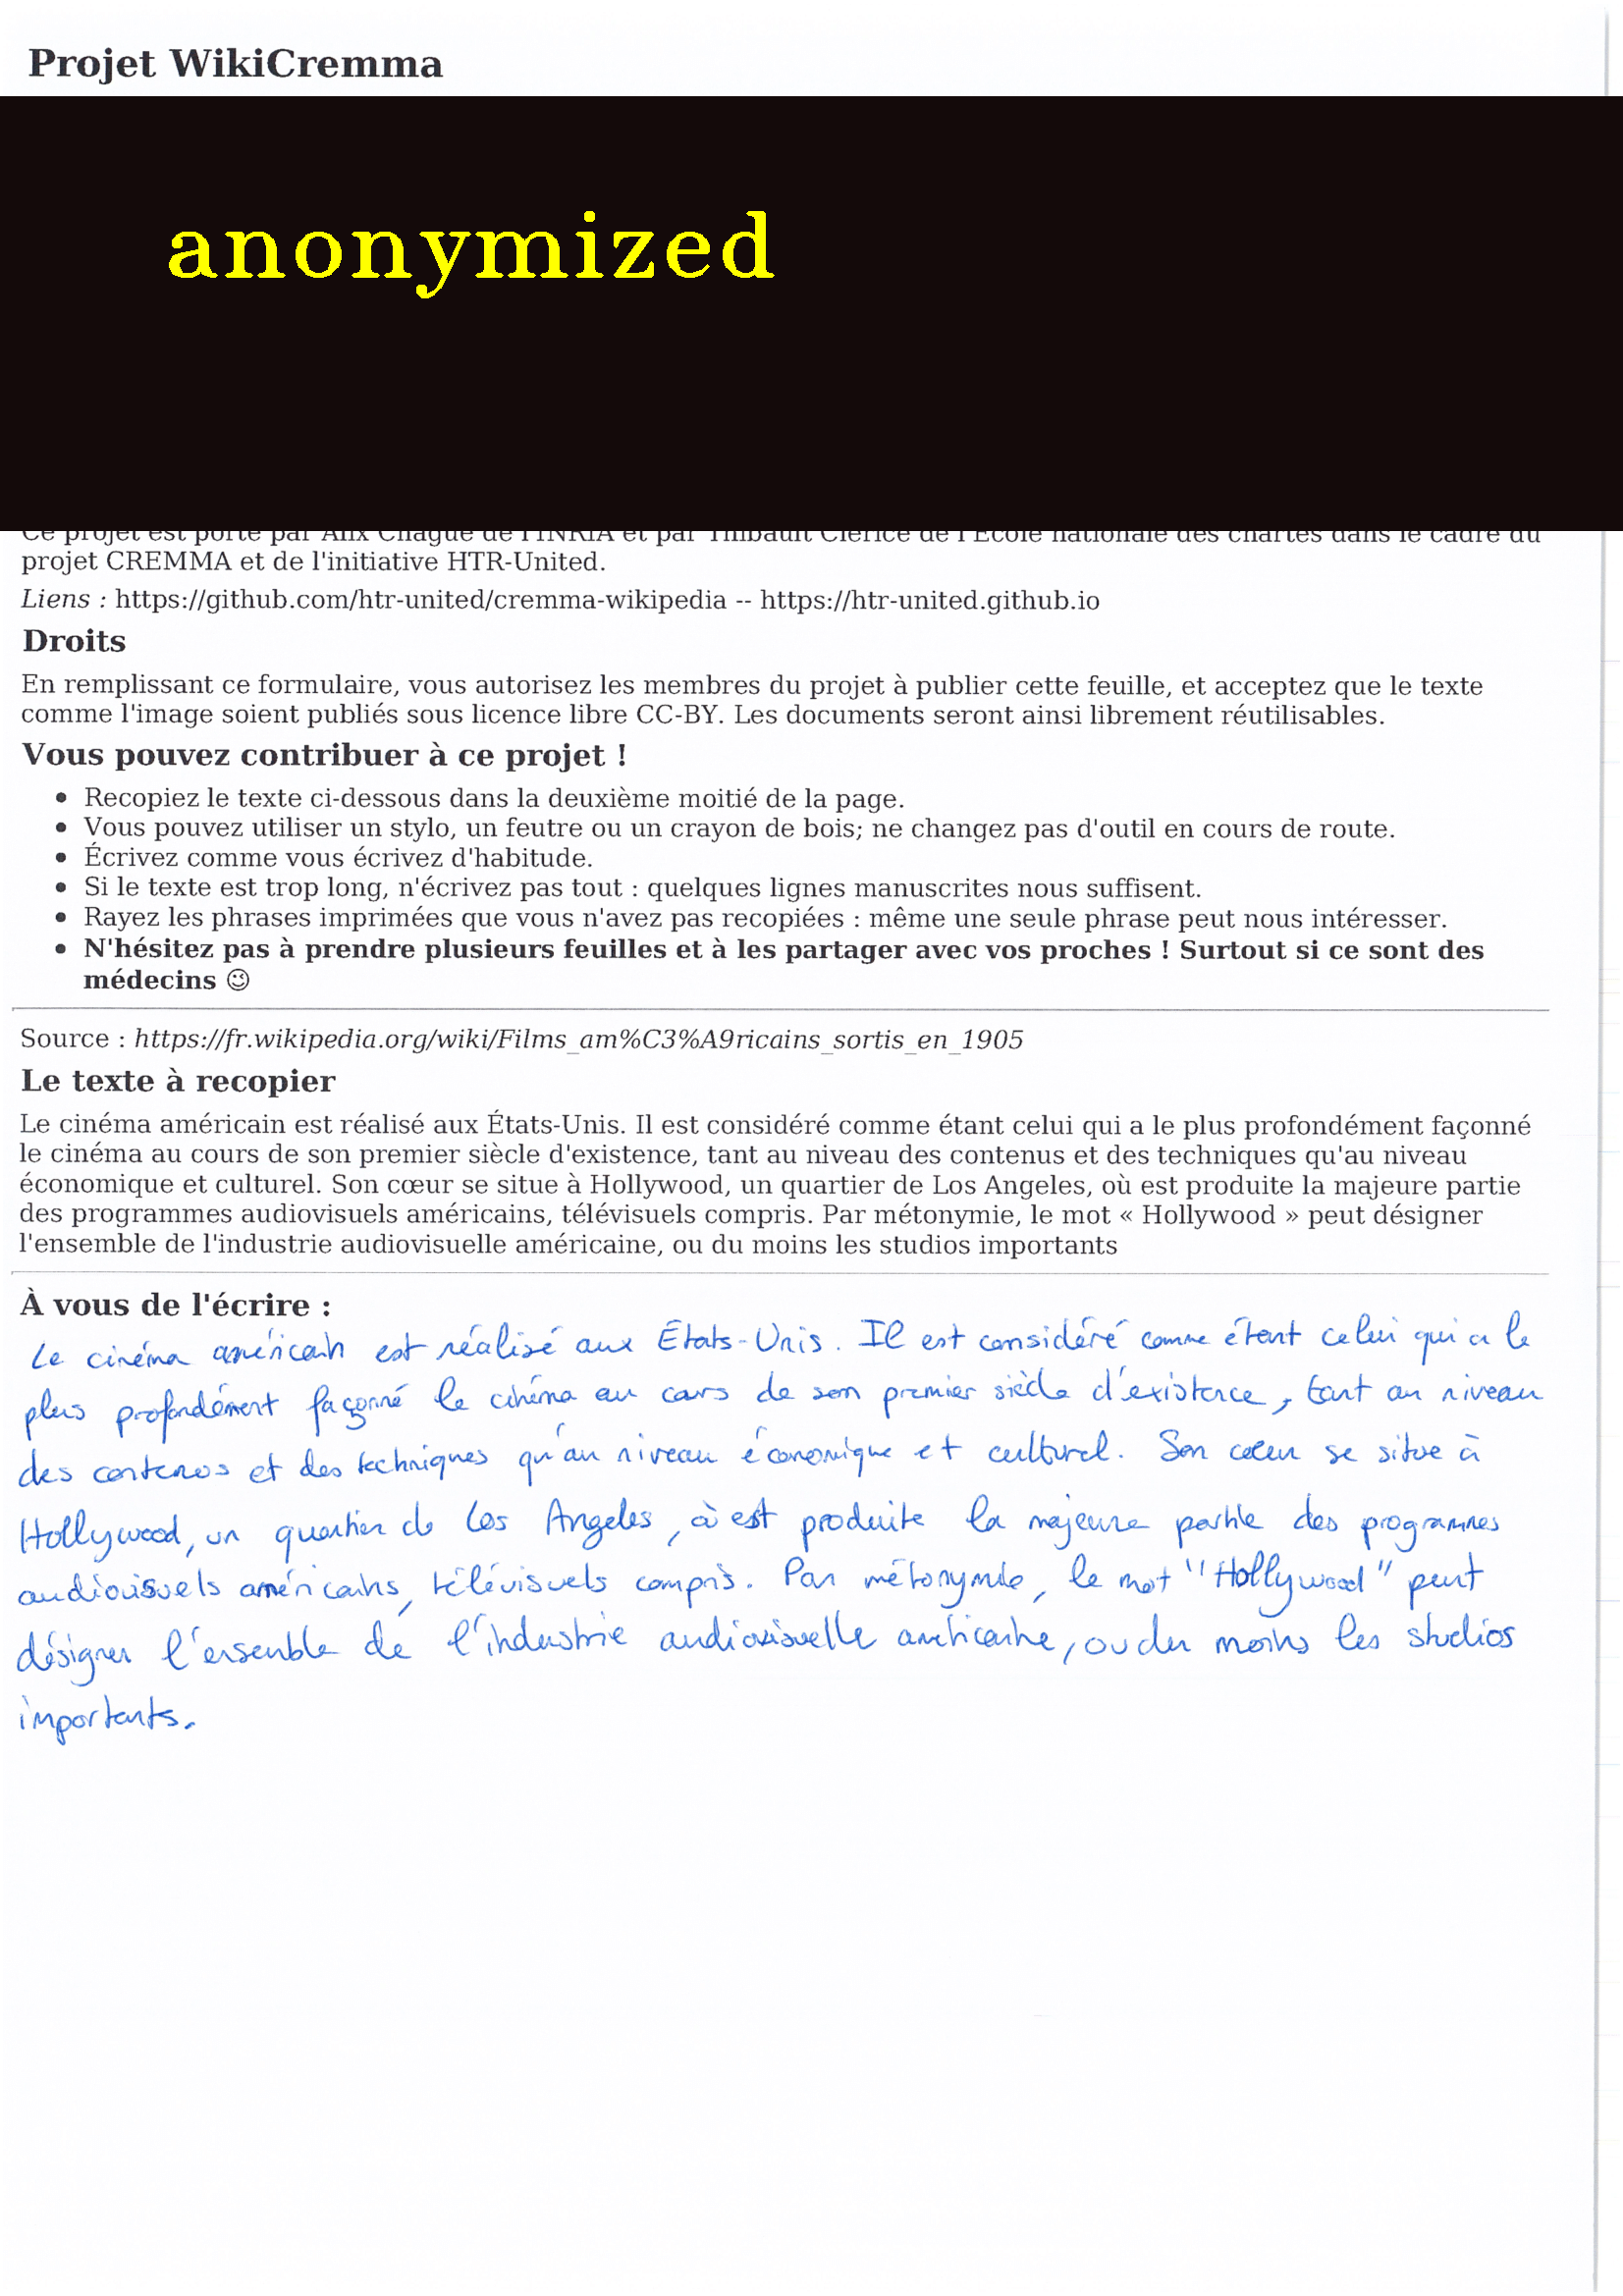 Projet WikiCremma
anonymized
Ce projet est porté par Alix Chagué de l'INRIA et par Thibault Clérice de l'École nationale des chartes dans le cadre du
projet CREMMA et de l'initiative HTR-United.
Liens : https://github.com/htr-united/cremma-wikipedia -- https://htr-united.github.io
Droits
En remplissant ce formulaire, vous autorisez les membres du projet à publier cette feuille, et acceptez que le texte
comme l'image soient publiés sous licence libre CC-BY. Les documents seront ainsi librement réutilisables.
Vous pouvez contribuer à ce projet !
• Recopiez le texte ci-dessous dans la deuxième moitié de la page.
• Vous pouvez utiliser un stylo, un feutre ou un crayon de bois; ne changez pas d'outil en cours de route.
• Écrivez comme vous écrivez d'habitude.
• Si le texte est trop long, n'écrivez pas tout : quelques lignes manuscrites nous suffisent.
• Rayez les phrases imprimées que vous n'avez pas recopiées : même une seule phrase peut nous intéresser.
• N'hésitez pas à prendre plusieurs feuilles et à les partager avec vos proches ! Surtout si ce sont des
médecins 😉
Source : https://fr.wikipedia.org/wiki/Films_am%C3%A9ricains_sortis_en_1905
Le texte à recopier
Le cinéma américain est réalisé aux États-Unis. Il est considéré comme étant celui qui a le plus profondément façonné
le cinéma au cours de son premier siècle d'existence, tant au niveau des contenus et des techniques qu'au niveau
économique et culturel. Son cœur se situe à Hollywood, un quartier de Los Angeles, où est produite la majeure partie
des programmes audiovisuels américains, télévisuels compris. Par métonymie, le mot « Hollywood » peut désigner
l'ensemble de l'industrie audiovisuelle américaine, ou du moins les studios importants
À vous de l'écrire :
Le cinéma américain est réalisé aux États-Unis. Il est considéré comme étant celui qui a le
plus profondément façonné le cinéma au cours de son premier siècle d'existence, tant au niveau
des contenus et des techniques qu'au niveau économique et culturel. Son cœur se situe à
Hollywood, un quartier de Los Angeles, où est produite la majeure partie des programmes
audiovisuels américains, télévisuels compris. Par métonymie, le mot "Hollywood" peut
désigner l'ensemble de l'industrie audiovisuelle américaine, ou du moins les studios
importants.